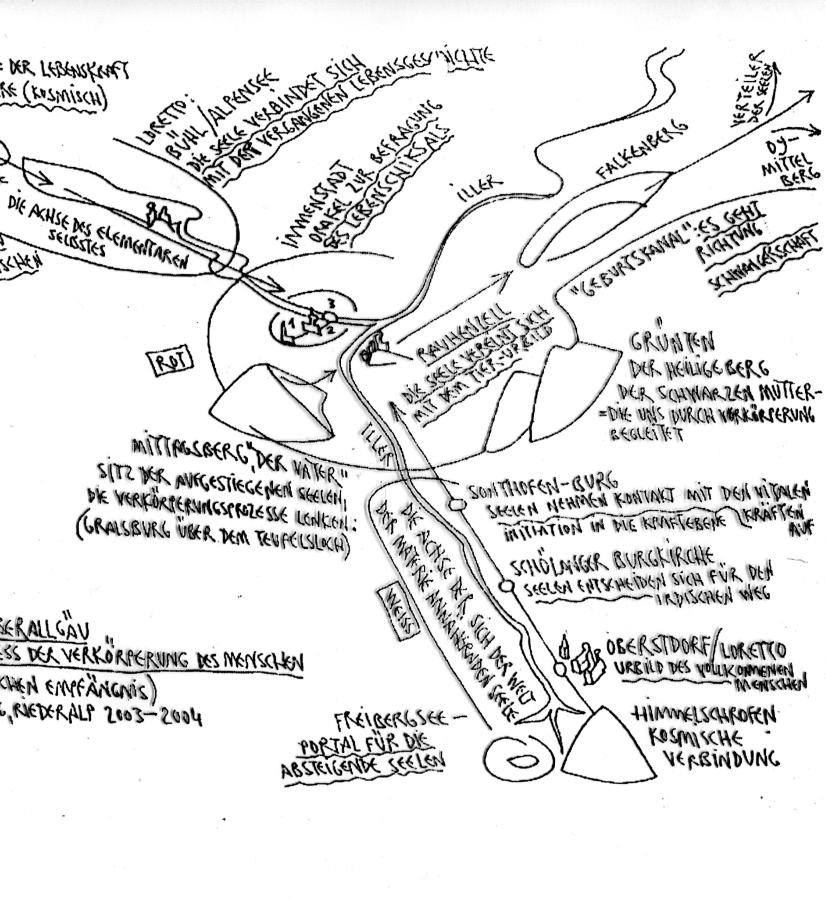 = DER LEBENSKRAFT
RE (KOSMISCH)
LORETTO:
BÜHL/ALPENSEE
DIE SEELE VERBINDET SICH
MIT DEM VERGANGENEN LEBENSGESCHICHTE
IMMENSTADT
ORAKEL ZUR BEFRAGUNG
DES LEBENSCHIKSALS
ILLER
FALKENBERG
VERTEILER
DER SEELEN
DY-
MITTEL
BERG
E
DIE ACHSE DES ELEMENTAREN
SELBSTES
SCHEN
"GEBURTSKANAL": ES GEHT
RICHTUNG
SCHWANGERSCHAFT
1 2 3
ROT
RAUHENZELL
DIE SEELE VEREINT SICH
MIT DEM TIER-URBILD
GRÜNTEN
DER HEILIGE BERG
DER SCHWARZEN MUTTER-
=DIE UNS DURCH VERKÖRPERUNG
BEGLEITET
ILLER
MITTAGSBERG "DER VATER"
SITZ DER AUFGESTIEGENEN SEELEN,
DIE VERKÖRPERUNGSPROZESSE LENKEN.
(GRALSBURG ÜBER DEM TEUFELSLOCH)
SONTHOFEN-BURG
SEELEN NEHMEN KONTAKT MIT DEN VITALEN
INITIATION IN DIE KRAFTEBENE (KRÄFTEN
AUF
DIE ACHSE DER SICH DER WELT
DER MATERIE ANNÄHERNDEN SEELE
WEISS
SCHÖLANGER BURGKIRCHE
SEELEN ENTSCHEIDEN SICH FÜR DEN
IRDISCHEN WEG
OBERSTDORF/LORETTO
URBILD DES VOLLKOMMENEN
MENSCHEN
BERALLGÄU
ESS DER VERKÖRPERUNG DES MENSCHEN
CHEN EMPFÄNGNIS)
G, RIEDERALP 2003-2004
FREIBERGSEE-
PORTAL FÜR DIE
ABSTEIGENDE SEELEN
HIMMELSCHROFEN
KOSMISCHE
VERBINDUNG